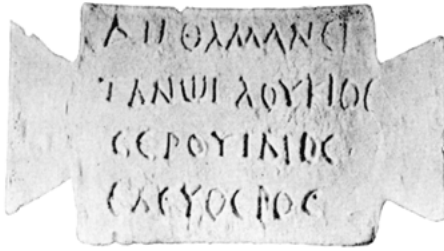 ΔΙΙ ΘΑΜΑΝΕΙ
ΤΑΝΩΙ ΛΟΥΠΟϹ
ϹΕΡΟΥΙΛΙΟϹ
ΕΛΕΥΘΕΡΟϹ